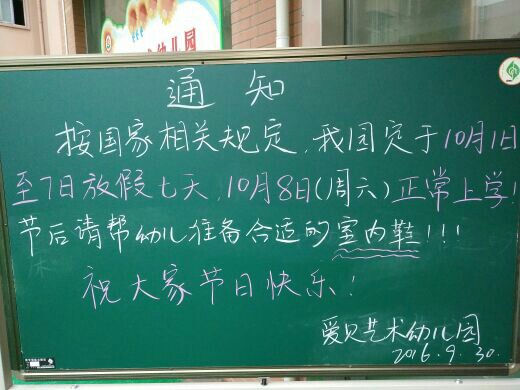 幼儿园
通知
按国家相关规定,我园定于10月1日
至7日放假七天,10月8日(周六)正常上学!
节后请帮幼儿准备合适的室内鞋!!!
祝大家节日快乐!
爱贝艺术幼儿园
2016.9.30.